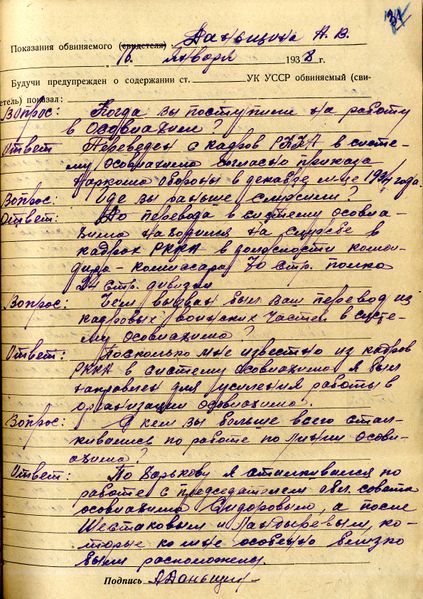 31
Показания обвиняемого (свидетеля) Даньшина А. В.
16. января 1938 г.
Будучи предупрежден о содержании ст. УК УССР обвиняемый (сви-
детель) показал:
Вопрос: Когда вы поступили на работу
в Осоавиахим?
Ответ Переведен с кадров РККА в систе-
му осоавиахима согласно приказа
Наркома обороны в декабре м-це года.
Вопрос: Где вы раньше служили?
Ответ: До перевода в систему осоавиа-
хима находился на службе в
кадрах РККА в должности коман-
дира-комиссара 70 стр. полка
24 стр. дивизии
Вопрос: Чем вызван был ваш перевод из
кадровых воинских частей в систе-
му Осоавиахима?
Ответ: Поскольку мне известно из кадров
РККА в систему осоавиахима я был
направлен для усиления работы в
организации осоавиахима.
Вопрос: С кем вы больше всего стал-
кивались по работе по линии осоави-
ахима?
Ответ: По Харькову я сталкивался по
работе с председателем обл. совета
осоавиахима Сидоровым, а после
Шестаковым и ко-
торые ко мне особенно близко
были расположены.
Подпись АДаньшин